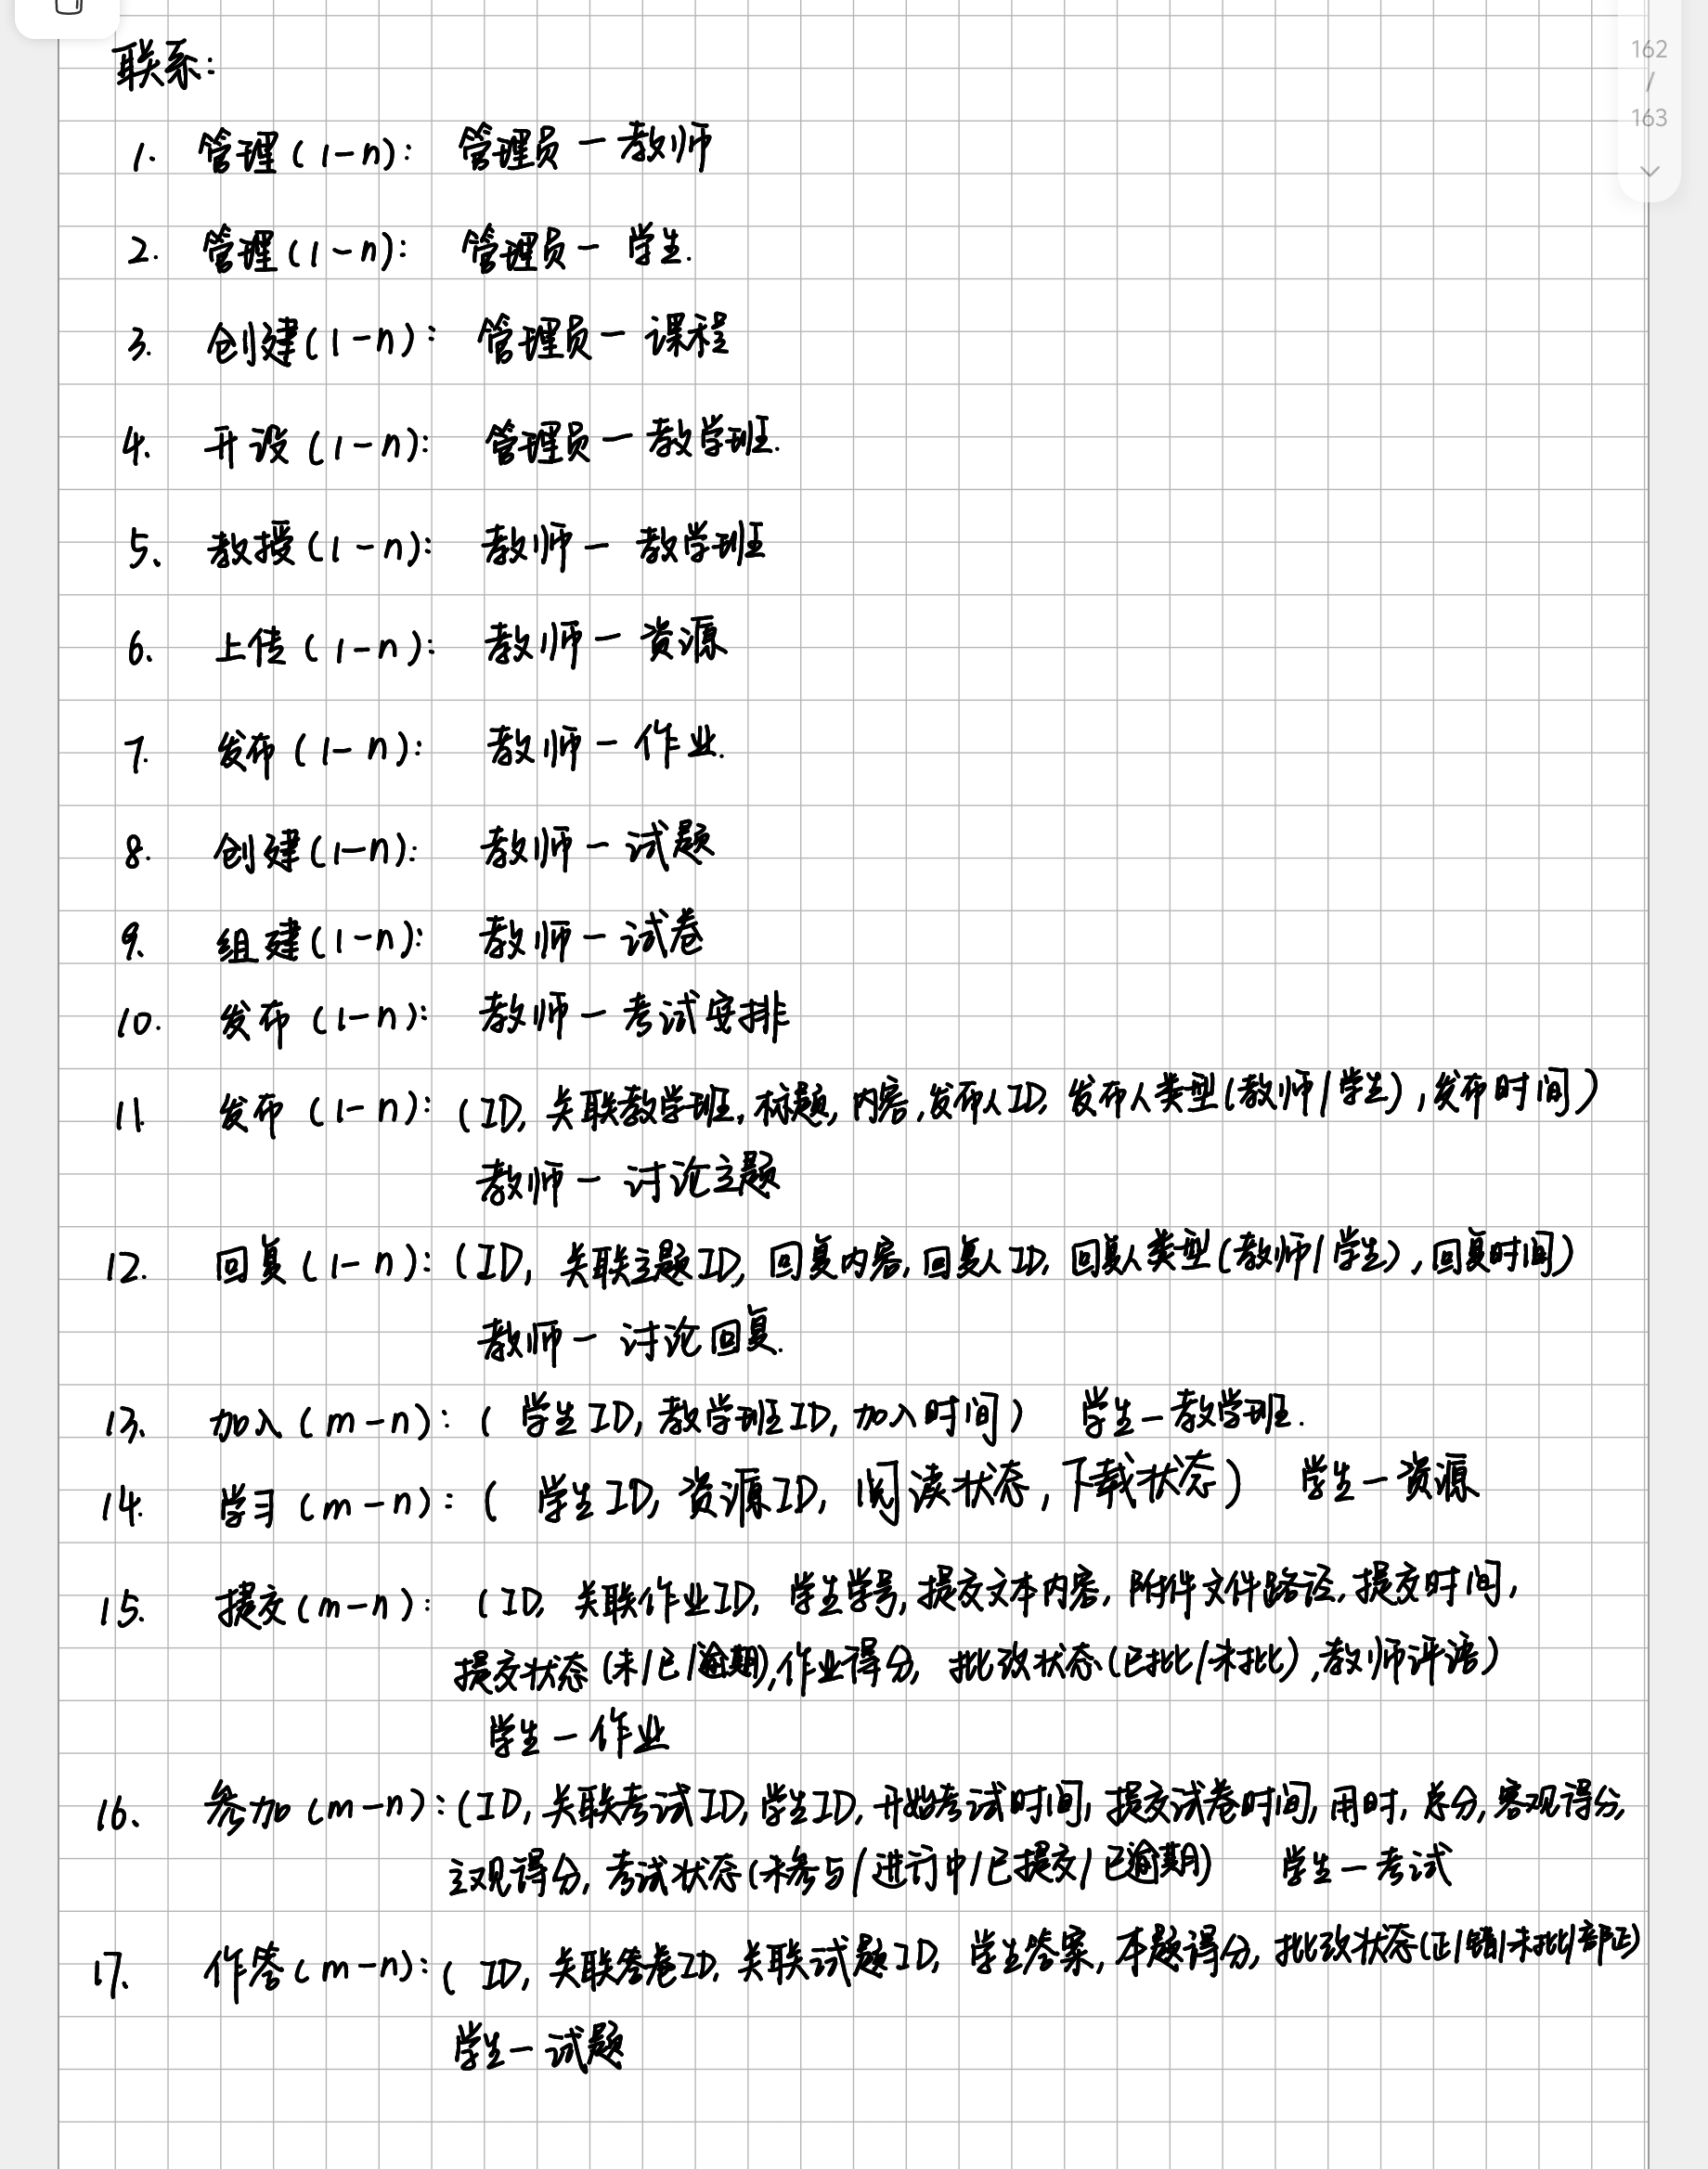 联系:
162
/
163
1. 管理(1-n): 管理员-教师
2. 管理(1-n): 管理员-学生.
3. 创建(1-n): 管理员-课程
4. 开设(1-n): 管理员-教学班.
5、教授(1-n): 教师-教学班
6. 上传(1-n): 教师-资源
7. 发布(1-n): 教师-作业.
8. 创建(1-n): 教师-试题
9. 组建(1-n): 教师-试卷
10. 发布(1-n): 教师-考试安排
11. 发布(1-n): (ID, 关联教学班, 标题, 内容, 发布人ID, 发布人类型(教师/学生), 发布时间)
教师-讨论主题
12. 回复(1-n): (ID, 关联主题ID, 回复内容, 回复人ID, 回复人类型(教师/学生), 回复时间)
教师-讨论回复.
13、加入(m-n): (学生ID, 教学班ID, 加入时间) 学生-教学班.
14. 学习(m-n): (学生ID, 资源ID, 阅读状态, 下载状态) 学生-资源
15. 提交(m-n): (ID, 关联作业ID, 学生学号, 提交文本内容, 附件文件路径, 提交时间,
提交状态(未/已/逾期), 作业得分, 批改状态(已批/未批), 教师评语)
学生-作业
16、参加(m-n): (ID, 关联考试ID, 学生ID, 开始考试时间, 提交试卷时间, 用时, 总分, 客观得分,
主观得分, 考试状态(未参与/进行中/已提交/已逾期) 学生-考试
17. 作答(m-n): (ID, 关联答卷ID, 关联试题ID, 学生答案, 本题得分, 批改状态(正/错/未批/部正)
学生-试题